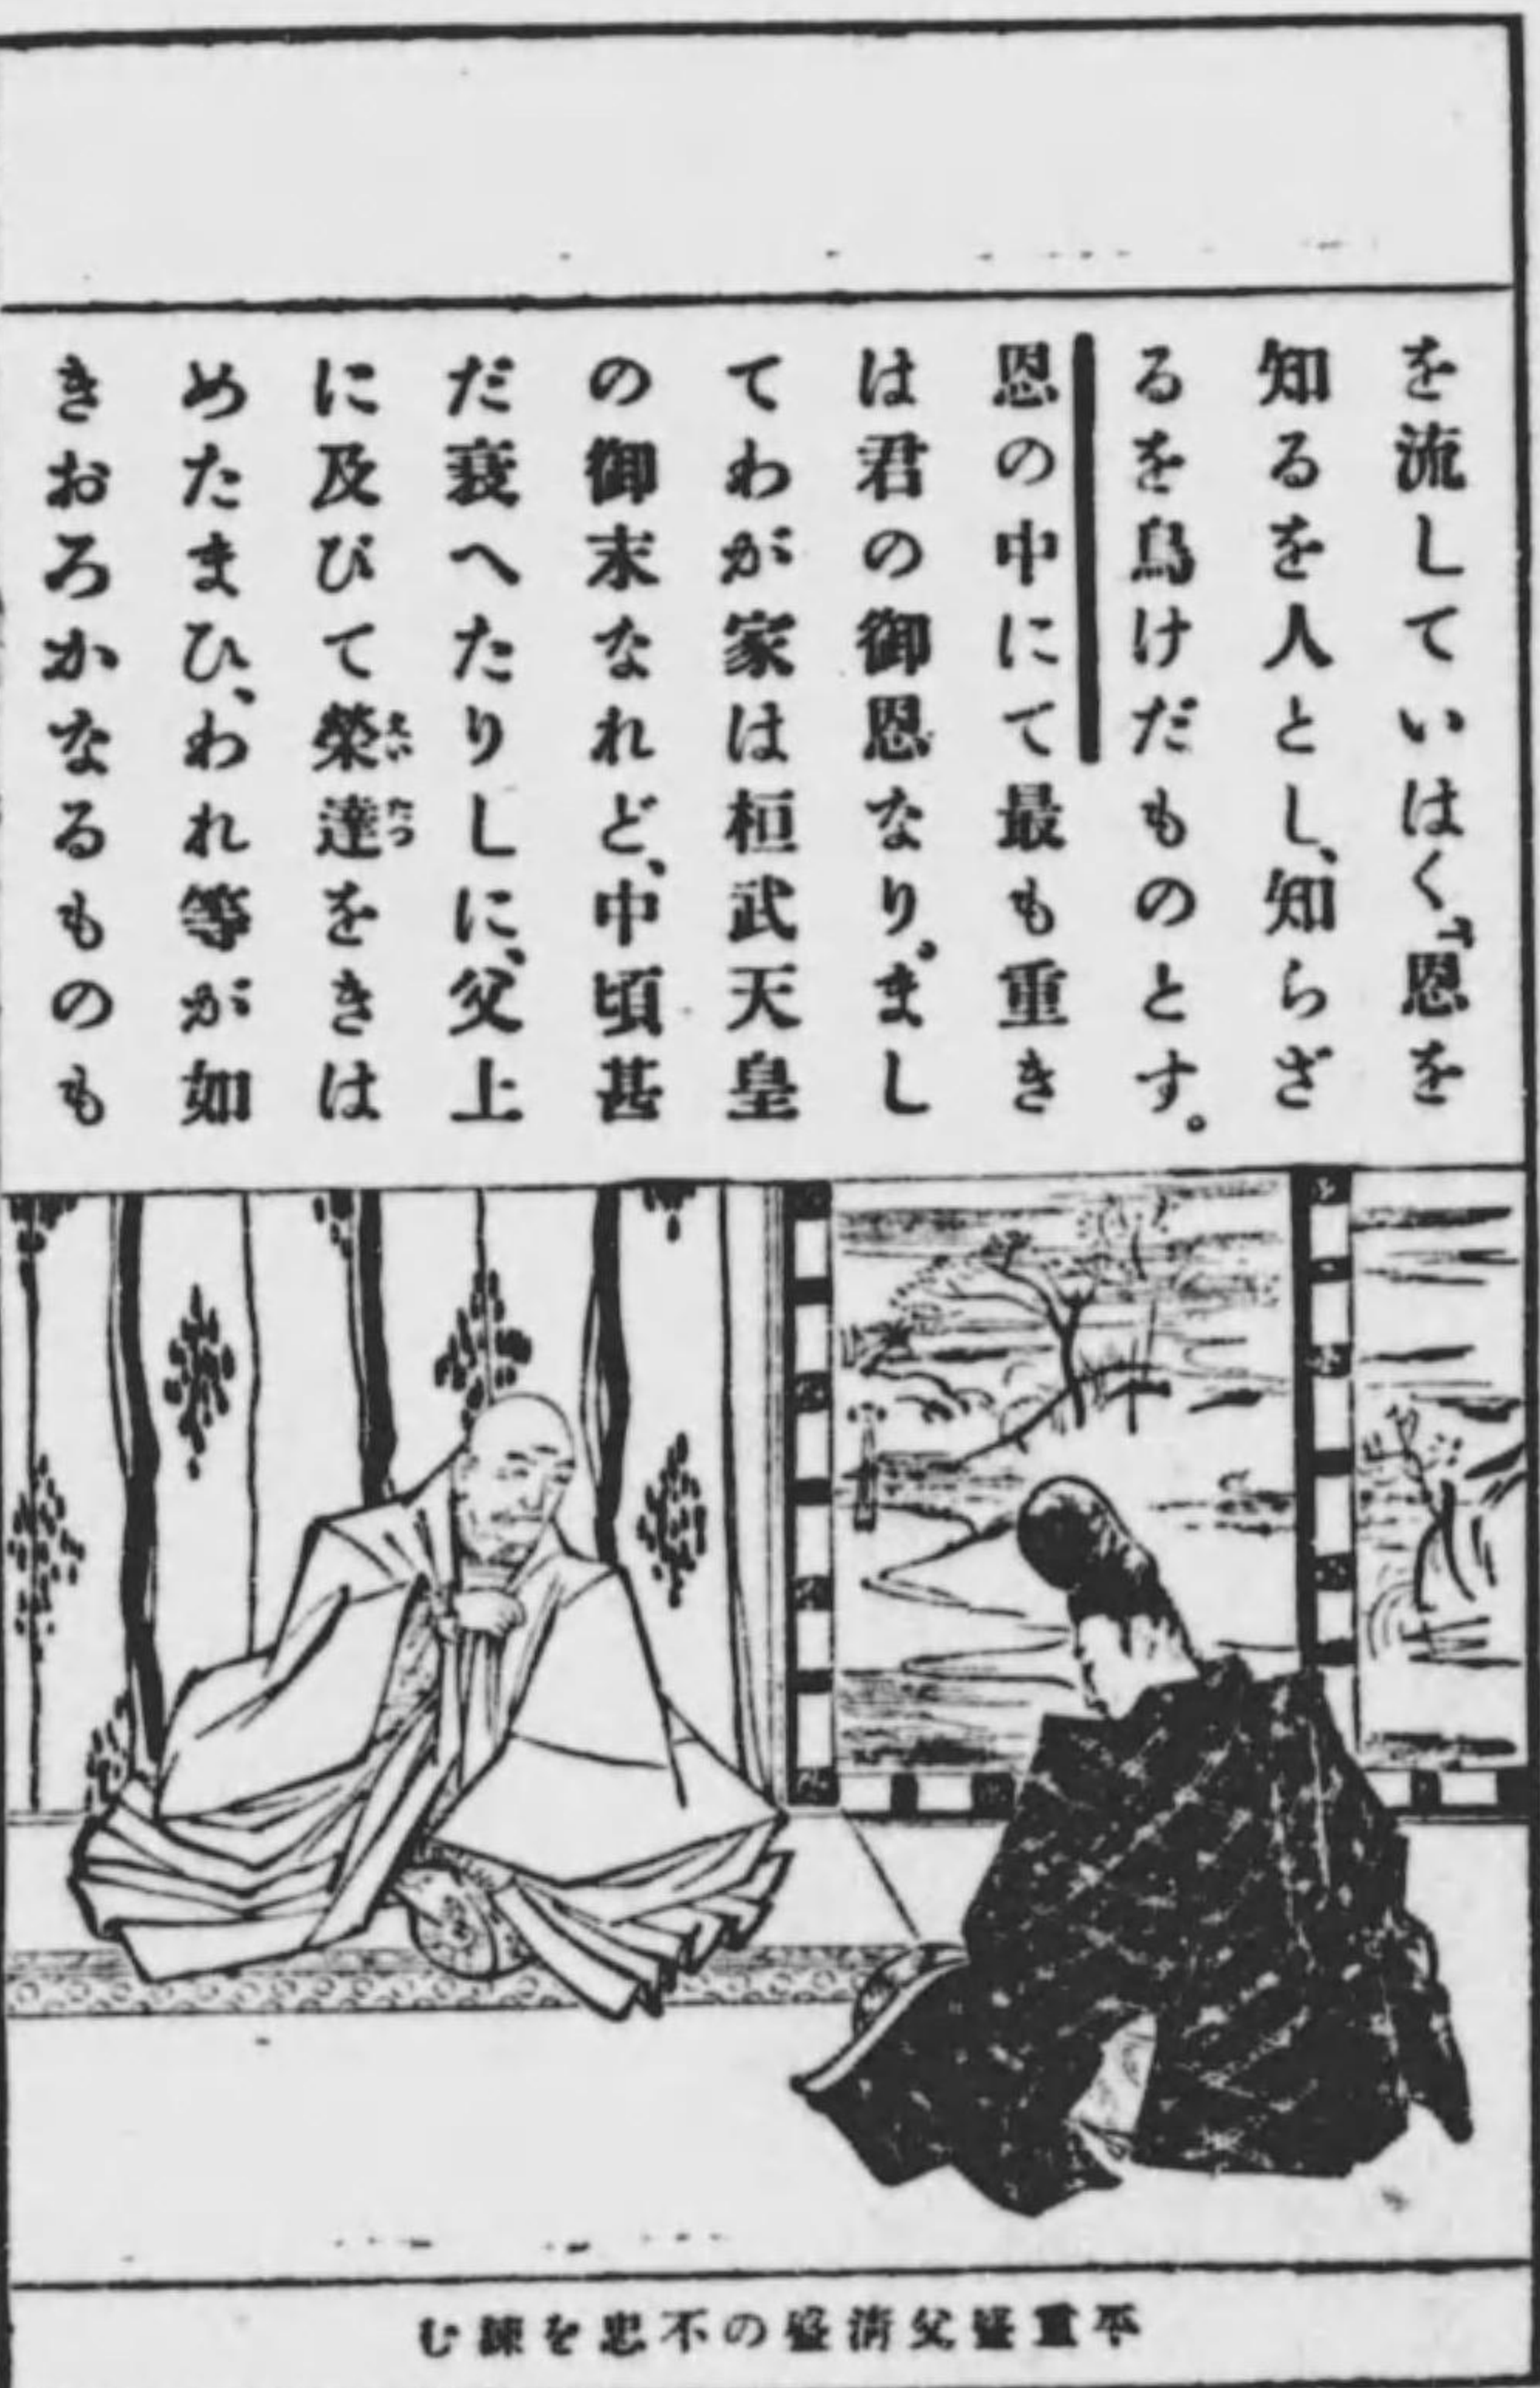 を流していはく、『恩を
知るを人とし、知らざ
るを鳥けだものとす。
恩の中にて最も重き
は君の御恩なり。まし
てわが家は桓武天皇
の御末なれど、中頃甚
だ衰へたりしに、父上
に及びて榮達をきは
めたまひ、われ等が如
きおろかなるものも
えいたつ
平重盛父淸盛の不忠を諫む